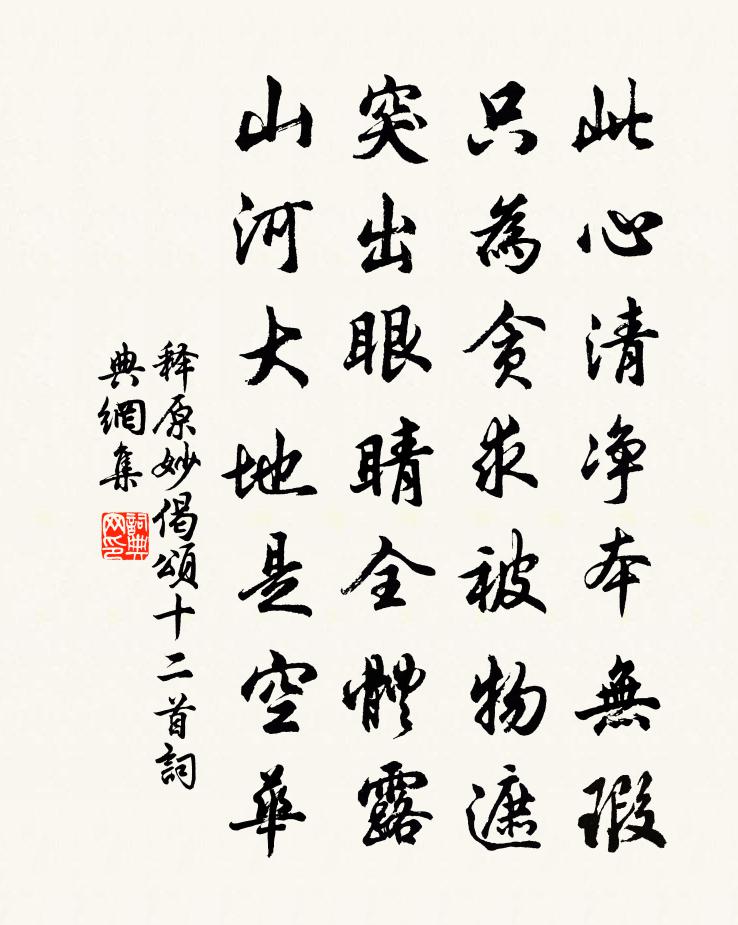 此心清净本無瑕
只為貪求被物遮
突出眼睛全體露
山河大地是空華
释原妙偈頌十二首詞
典網集
詞典
网印